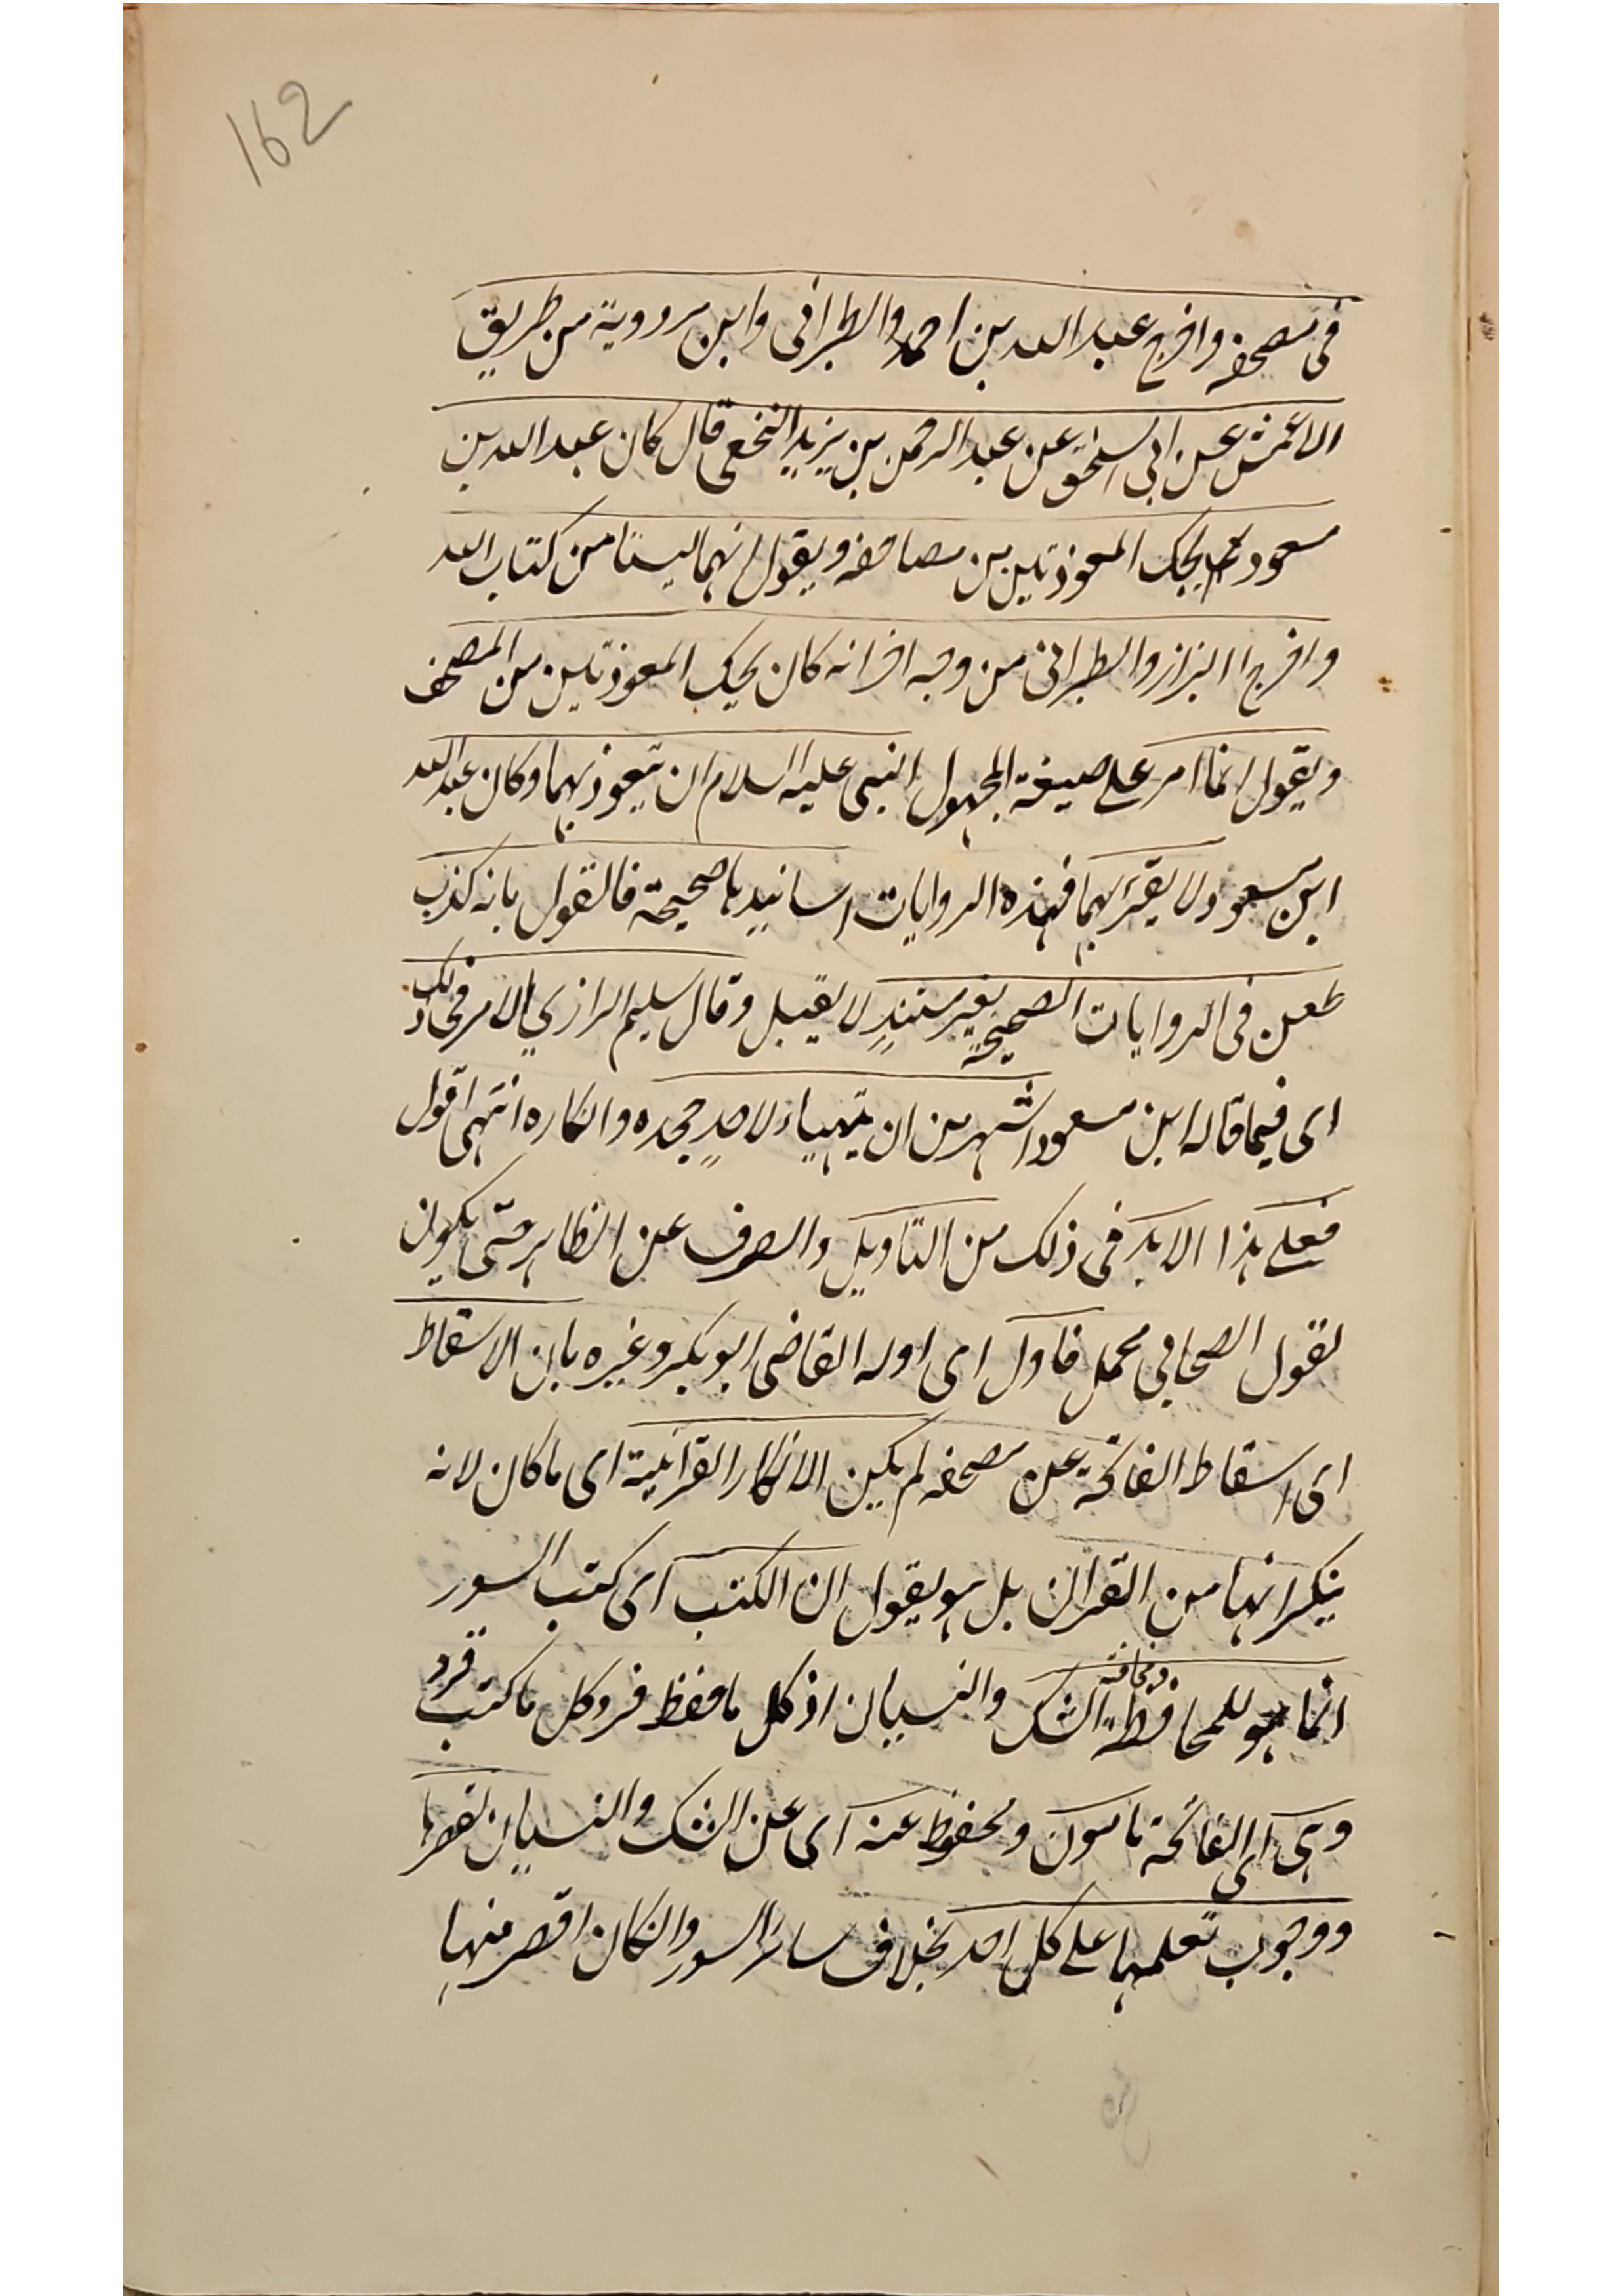 162
فى مصحفه واخرج عبد الله بن احمد والطبرانى وابن مردوية من طريق
الاعمش عن ابى اسحٰق عن عبد الرحمن بن يزيد النخعى قال كان عبد الله بن
مسعود يحك المعوذتين من مصاحفه ويقول انهما ليستا من كتاب الله
واخرج البزاز والطبرانى من وجه اخر انه كان يحك المعوذتين من المصحف
ويقول انما امر على صيغة المجهول النبى عليه السلام ان يتعوذ بهما وكان عبد الله
ابن مسعود لا يقرء بهما فهذه الروايات اسانيدها صحيحة فالقول بانه كذب
طعن فى الروايات الصحيحة بغير مستند لا يقبل وقال سليم الرازي الامر فى ذلك
اى فيما قاله ابن مسعود اشهر من ان يتهياء لاحد جحده وانكاره انتهى اقول
فعلى هذا لابد فى ذلك من التاويل والصرف عن الظاهر حتى يكون
لقول الصحابي محمل فاول اى اوله القاضى ابو بكر وغيره بان الاسقاط
اى اسقاط الفاتحة عن مصحفه لم يكن لانكار القرآنية اى ما كان لانه
ينكر انها من القرآن بل هو يقول ان الكتب اى كتب السور
انما هو للمحافظة ومخافة الشك والنسيان اذ كل ما حفظ فر وكل ما كتب قر
وهى اى الفاتحة مامون ومحفوظ عنه اى عن الشك والنسيان لقصرها
ووجوب تعلمها على كل احد بخلاف سائر السور وانكان اقصر منها